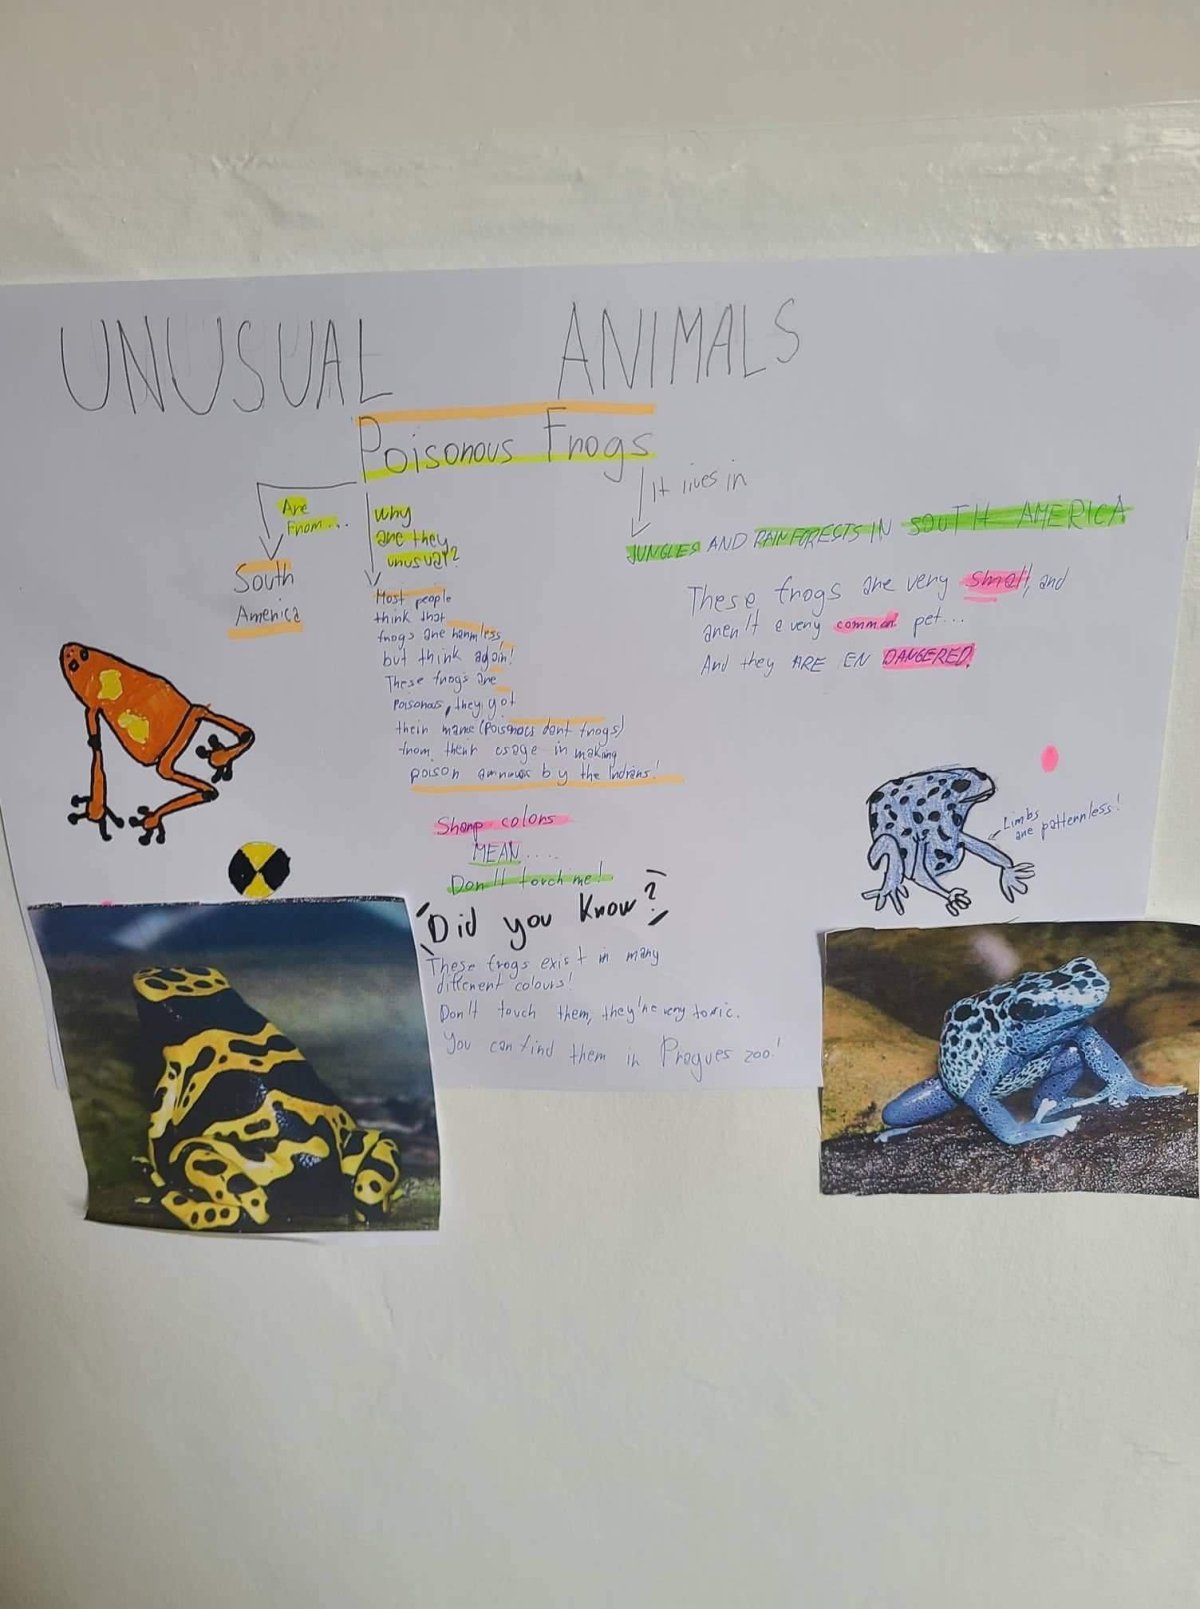 UNUSUAL ANIMALS
Poisonous Frogs
Are
From...
South
America
Why
are they
unusual?
Most people
think that
frogs are harmless
but think again!
These frogs are
Poisonous, they got
their name (Poisonous dart frogs)
from their usage in making
poison arrows by the Indians!
Sharp colors
MEAN....
Don't touch me!
It lives in
JUNGLES AND RAINFORESTS IN SOUTH AMERICA
These frogs are very small, and
aren't a very common pet...
And they ARE EN DANGERED.
Limbs
are patternless!
Did you Know?
These frogs exist in many
different colours!
Don't touch them, they're very toxic.
You can find them in Pragues zoo!